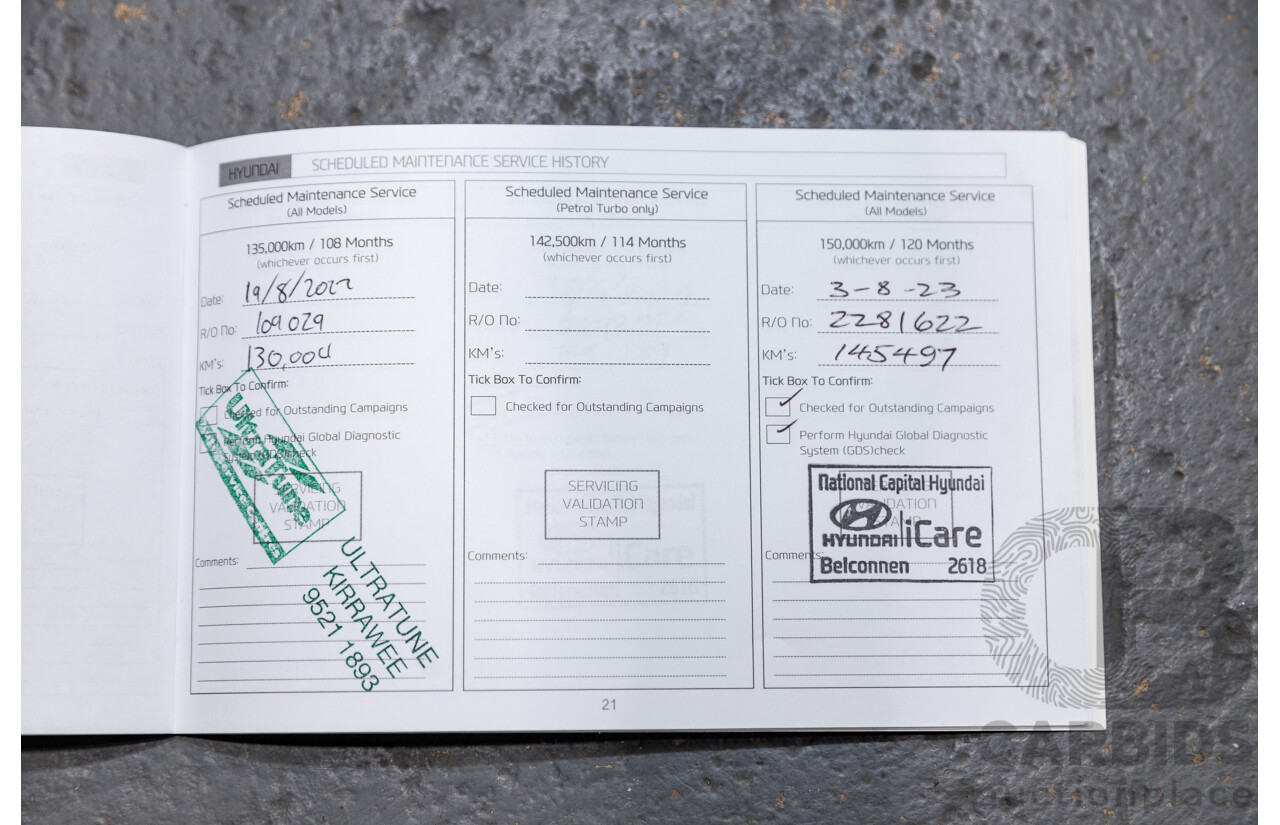 HYUNDAI
SCHEDULED MAINTENANCE SERVICE HISTORY
Scheduled Maintenance Service
(All Models)
135,000km / 108 Months
(whichever occurs first)
Date: 19/8/2022
R/O No: 109029
KM's: 130,000
Tick Box To Confirm:
Checked for Outstanding Campaigns
Perform Hyundai Global Diagnostic
System (GDS)check
SERVICING
VALIDATION
STAMP
Ultra Tune
Comments:
ULTRATUNE
KIRRAWEE
9521 1893
Scheduled Maintenance Service
(Petrol Turbo only)
142,500km / 114 Months
(whichever occurs first)
Date:
R/O No:
KM's:
Tick Box To Confirm:
Checked for Outstanding Campaigns
SERVICING
VALIDATION
STAMP
Comments:
Scheduled Maintenance Service
(All Models)
150,000km / 120 Months
(whichever occurs first)
Date: 3-8-23
R/O No: 2281622
KM's: 145497
Tick Box To Confirm:
Checked for Outstanding Campaigns
Perform Hyundai Global Diagnostic
System (GDS)check
National Capital Hyundai
HYUNDAI iCare
Belconnen 2618
Comments:
21
CARBIDS
auctionplace